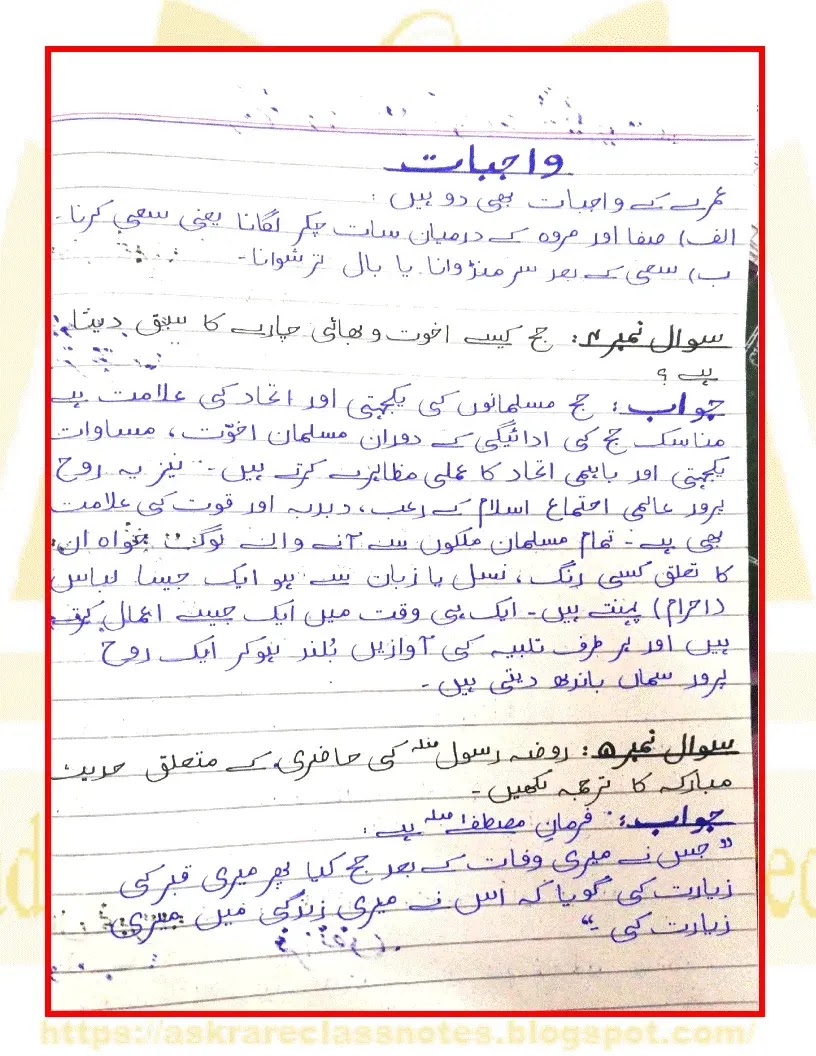 واجبات
عمرے کے واجبات بھی دو ہیں :
الف) صفا اور مروہ کے درمیان سات چکر لگانا یعنی سعی کرنا۔
ب) سعی کے بعد سر منڈوانا یا بال ترشوانا۔
سوال نمبر ۴: حج کیسے اخوت و بھائی چارے کا سبق دیتا
ہے ؟
جواب: حج مسلمانوں کی یکجہتی اور اتحاد کی علامت ہے
مناسک حج کی ادائیگی کے دوران مسلمان اخوّت، مساوات
یکجہتی اور باہمی اتحاد کا عملی مظاہرے کرتے ہیں۔ نیز یہ روح
پرور عالمی اجتماع اسلام کے رعب، دبدبہ اور قوت کی علامت
بھی ہے۔ تمام مسلمان ملکوں سے آنے والے لوگ خواہ ان
کا تعلق کسی رنگ، نسل یا زبان سے ہو ایک جیسا لباس
(احرام) پہنتے ہیں۔ ایک ہی وقت میں ایک جیسے اعمال کرتے
ہیں اور ہر طرف تلبیہ کی آوازیں بُلند ہوکر ایک روح
پرور سماں باندھ دیتی ہیں۔
سوال نمبر ۵: روضہ رسول ﷺ کی حاضری کے متعلق حدیث
مبارکہ کا ترجمہ لکھیں۔
جواب: فرمانِ مصطفےٰ ﷺ ہے :
"جس نے میری وفات کے بعد حج کیا پھر میری قبر کی
زیارت کی گویا کہ اس نے میری زندگی میں میری
زیارت کی۔"
https://askrareclassnotes.blogspot.com/